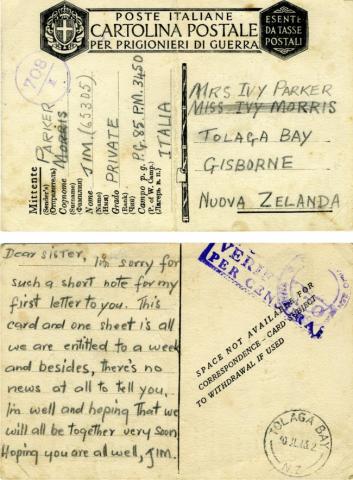 POSTE ITALIANE
CARTOLINA POSTALE
PER PRIGIONIERI DI GUERRA
ESENTE
DA TASSE
POSTALI
708
Mittente
(Sender's)
(Отправитель)
Cognome
(Surname)
(Фамилия)
PARKER
MORRIS
Nome
(Name)
(Имя)
JIM. (65305)
Grado
(Rank)
(Чин)
PRIVATE
Campo p. g.
(P. of W. Camp.)
P.G. 85. P.M. 3450
ITALIA
MRS IVY PARKER
MISS IVY MORRIS
TOLAGA BAY
GISBORNE
NUOVA ZELANDA
Dear Sister, I'm sorry for
such a short note for my
first letter to you. This
card and one sheet is all
we are entitled to a week
and besides, there's no
news at all to tell you.
I'm well and hoping that we
will all be together very soon
Hoping you are all well, JIM.
PER CENSURA
SPACE NOT AVAILABLE FOR
CORRESPONDENCE - CARD SUBJECT
TO WITHDRAWAL IF USED
TOLAGA BAY
N.Z.